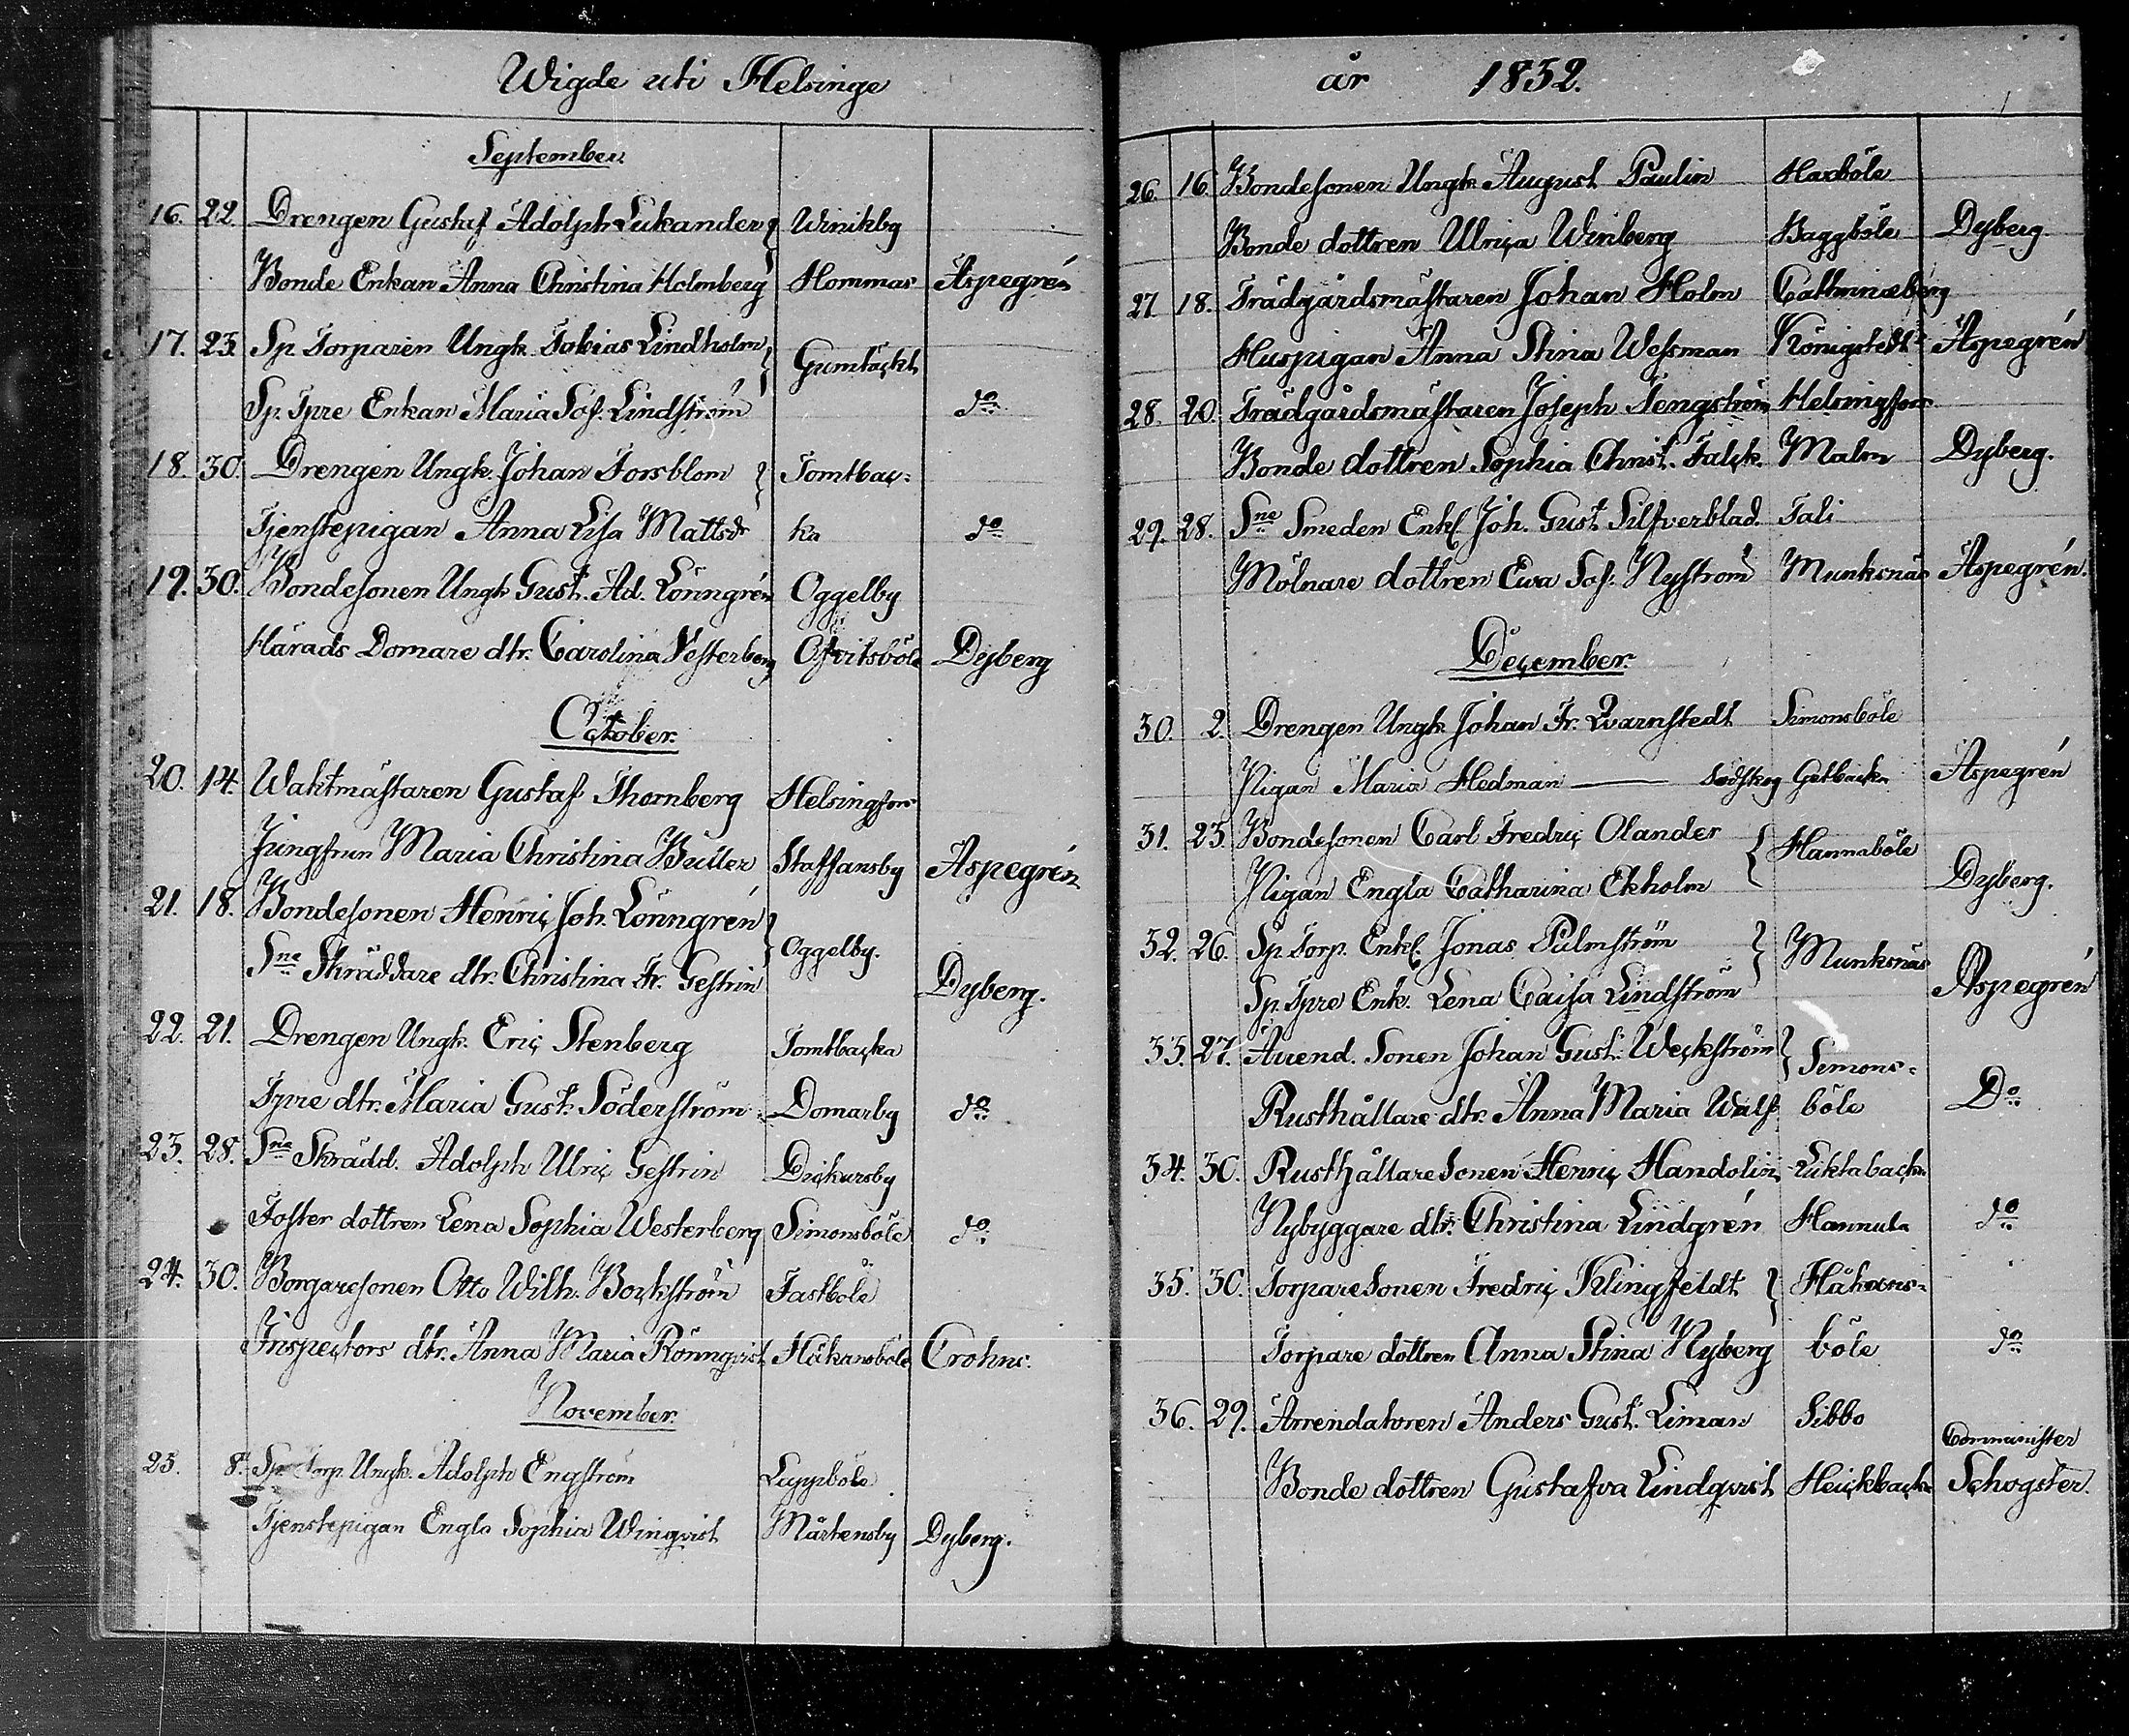 Wigde uti Helsinge
September.
16. 22. Drengen Gustaf Adolph Lukander Winikby
Bonde Enkan Anna Christina Holmberg Hommas Aspegrén
17. 23. Sp. Torparen Ungk. Tobias Lindholm Gumtäckt
Sp. Tpre Enkan Maria Sof. Lindström do
18. 30. Drengen Ungk. Johan Forsblom Tomtbac-
Tjenstepigan Anna Lisa Mattsdr ka do
19. 30. Bondesonen Ungk. Gust. Ad. Lönngrén Oggelby
Härads Domare dtr. Carolina Vesterberg Ofvitsböle Dyberg
October.
20. 14. Waktmästaren Gustaf Thornberg Helsingfors
Jungfrun Maria Christina Buller Staffansby Aspegrén
21. 18. Bondesonen Henric Joh. Lönngrén
Sne Skräddare dtr. Christina Fr. Gestrin Oggelby. Dyberg.
22. 21. Drengen Ungk. Eric Stenberg Tomtbacka
Tpre dtr. Maria Gust. Söderström Domarby do
23. 28. Sne Skrädd. Adolph Ulric Gestrin Dickursby
Foster dottren Lena Sophia Westerberg Simonsböle do
24. 30. Borgaresonen Otto Wilh. Bockström Fastböle
Inspectors dtr. Anna Maria Rönnqvist Håkansböle Crohns.
November.
25. 8. Sp. Torp. Ungk. Adolph Engström Lappböle
Tjenstepigan Engla Sophia Winqvist Mårtensby Dyberg.
år 1852.
26. 16. Bondesonen Ungk. August Paulin Haxböle
Bonde dottren Ulrica Winberg Baggböle Dyberg.
27 18. Trädgårdsmästaren Johan Holm Cathrinæberg
Huspigan Anna Stina Wessman Königstedt Aspegrén
28. 20. Trädgårdsmästaren Joseph Tengström Helsingfors
Bonde dottren Sophia Christ. Falck. Malm Dyberg.
29. 28. Sne Smeden Enkl. Joh. Gust. Silfverblad. Tali
Mölnare dottren Ewa Sof. Nyström Munksnäs Aspegrén.
December.
30. 2. Drengen Ungk. Johan Fr. Qvarnstedt Simonsböle
Pigan Maria Hedman Sodskog Getbacka Aspegrén
31. 23. Bondesonen Carl Fredric Olander Hannaböle
Pigan Engla Catharina Ekholm Dyberg.
32. 26. Sp. Torp. Enkl. Jonas Palmström Munksnäs
Sp. Tpre Enk. Lena Caisa Lindström Aspegrén
33. 27. Arrend. Sonen Johan Gust. Weckström Simons-
Rusthållare dtr. Anna Maria Walf böle Do
34. 30. Rusthållare Sonen Henric Handolin Luktabacka
Nybyggare dtr. Christina Lindgrén Hannula do
35. 30. Torpare Sonen Fredric Klingfeldt Håkans-
Torpare dottren Anna Stina Nyberg böle do
36. 29. Arrendatoren Anders Gust. Liman Sibbo
Bonde dottren Gustafva Lindqvist Heickbacka Comminister Schogster.